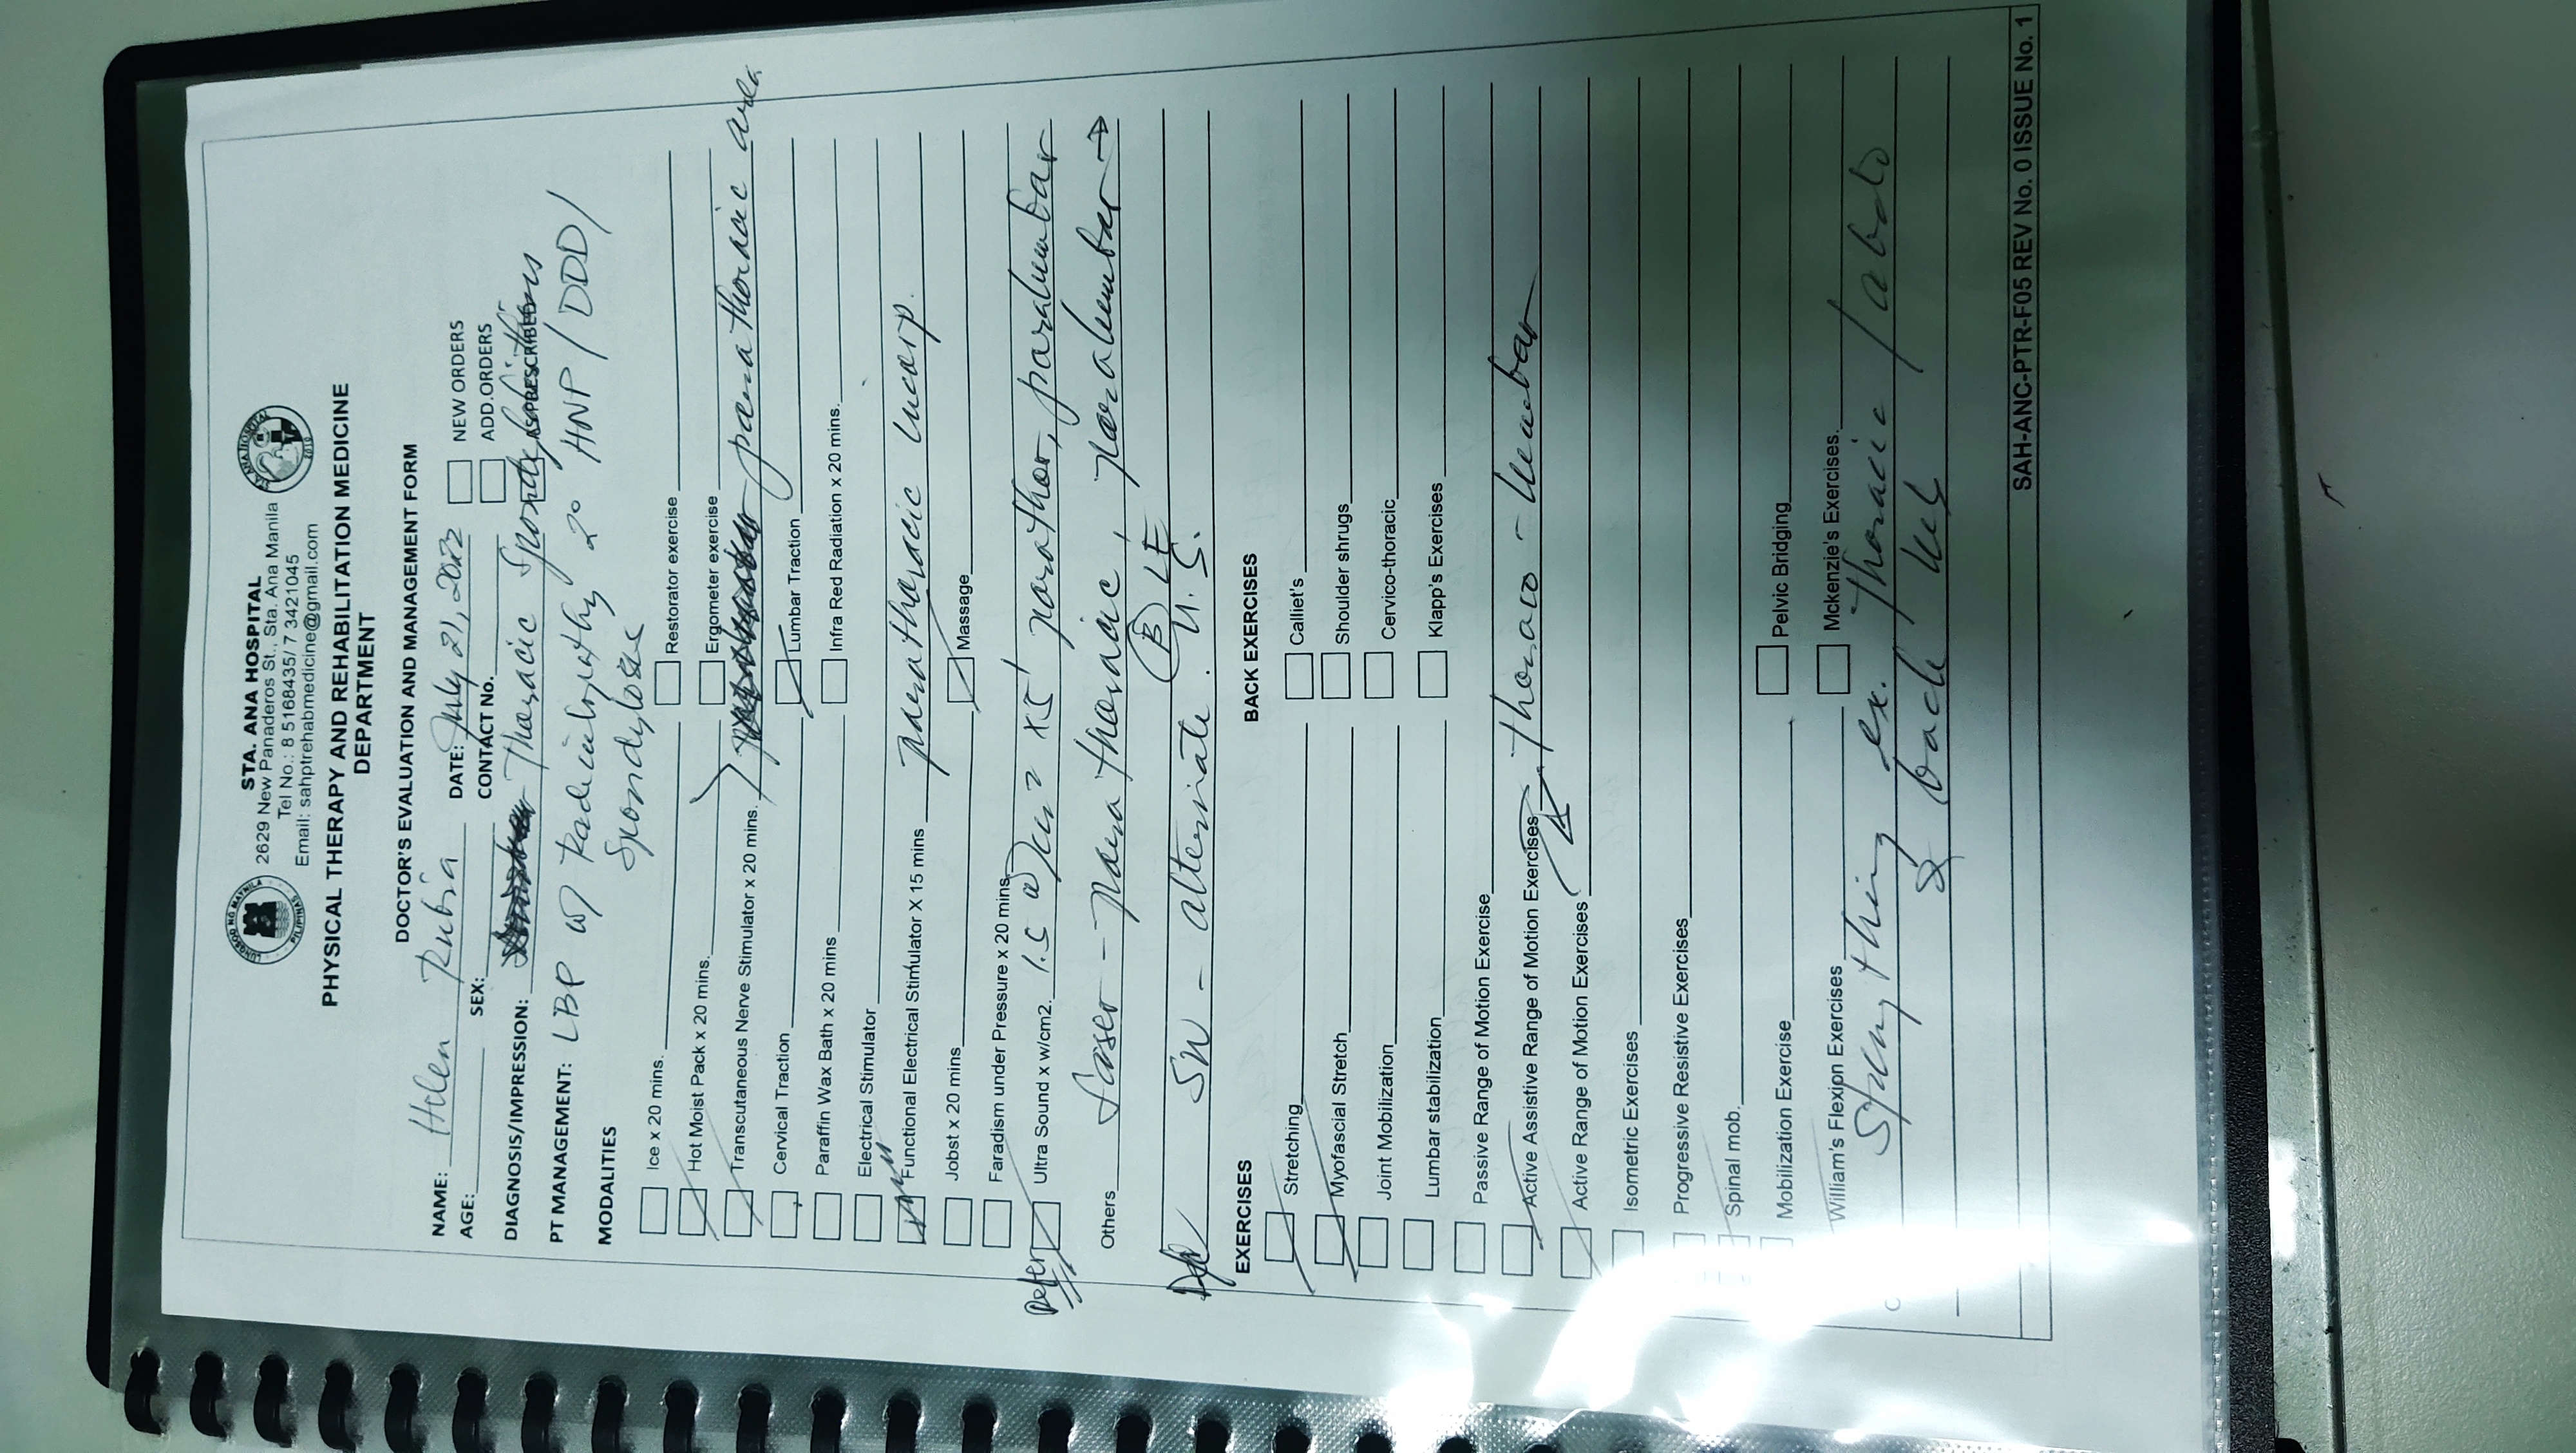 LUNGSOD NG MAYNILA
PILIPINAS
STA. ANA HOSPITAL
2629 New Panaderos St., Sta. Ana Manila
Tel No.: 8 5168435/ 7 3421045
Email: sahptrehabmedicine@gmail.com
STA. ANA HOSPITAL
2010
PHYSICAL THERAPY AND REHABILITATION MEDICINE
DEPARTMENT
DOCTOR'S EVALUATION AND MANAGEMENT FORM
NAME: Helen Rubia DATE: July 21, 2022 NEW ORDERS
AGE: SEX: CONTACT No. ADD.ORDERS
DIAGNOSIS/IMPRESSION: Thoracic AS PRESCRIBED
PT MANAGEMENT: LBP w/ Radiculopathy 2° HNP / DDD /
MODALITIES Spondylosis
Ice x 20 mins. Restorator exercise
Hot Moist Pack x 20 mins. Ergometer exercise
Transcutaneous Nerve Stimulator x 20 mins. parathoracic area
Cervical Traction Lumbar Traction
Paraffin Wax Bath x 20 mins Infra Red Radiation x 20 mins.
Electrical Stimulator
Functional Electrical Stimulator X 15 mins parathoracic incorp.
Jobst x 20 mins Massage
Faradism under Pressure x 20 mins
Defer Ultra Sound x w/cm2. 1.5 w/cm2 x5' parathor, paralumbar
Others Laser - parathoracic, paralumbar →
B LE
SW - alternate U.S.
EXERCISES BACK EXERCISES
Stretching Calliet's
Myofascial Stretch Shoulder shrugs
Joint Mobilization Cervico-thoracic
Lumbar stabilization Klapp's Exercises
Passive Range of Motion Exercise
Active Assistive Range of Motion Exercises Thoraco - lumbar
Active Range of Motion Exercises
Isometric Exercises
Progressive Resistive Exercises
Spinal mob.
Mobilization Exercise Pelvic Bridging
William's Flexion Exercises Mckenzie's Exercises.
ex. Thoracic / abdo
& back
SAH-ANC-PTR-F05 REV No. 0 ISSUE No. 1